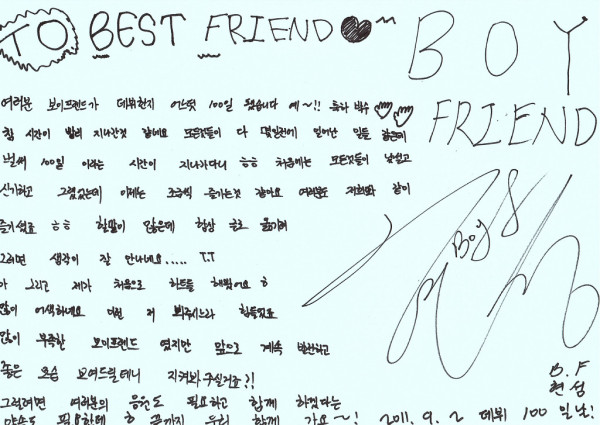 TO BEST FRIEND♥~
BOY
FRIEND
여러분 보이프렌드가 데뷔한지 어느덧 100일 됐습니다 예~!! 축하 박수
참 시간이 빨리 지나간것 같네요 모든것들이 다 몇일전에 일어난 일들 같은데
벌써 100일 이라는 시간이 지나가다니 ㅎㅎ 처음에는 모든것들이 낯설고
신기하고 그랬었는데 이제는 조금씩 즐기는것 같아요 여러분도 저희와 같이
즐기셔요 ㅎㅎ 할말이 많은데 항상 글로 옮기려
그러면 생각이 잘 안나네요..... T.T
아 그리고 제가 처음으로 하트를 해봤어요 ㅎ
많이 어색하네요 이런 저 봐주시느라 힘들었죠
많이 부족한 보이프렌드 였지만 앞으로 계속 발전하고
좋은 모습 보여드릴테니 지켜봐 주실거죠?!
그럴려면 여러분의 응원도 필요하고 함께 하겠다는
약속도 필요한데 ㅎ 끝까지 우리 함께 가요~!
Boy
B.F
현성
2011. 9. 2 데뷔 100 일날!